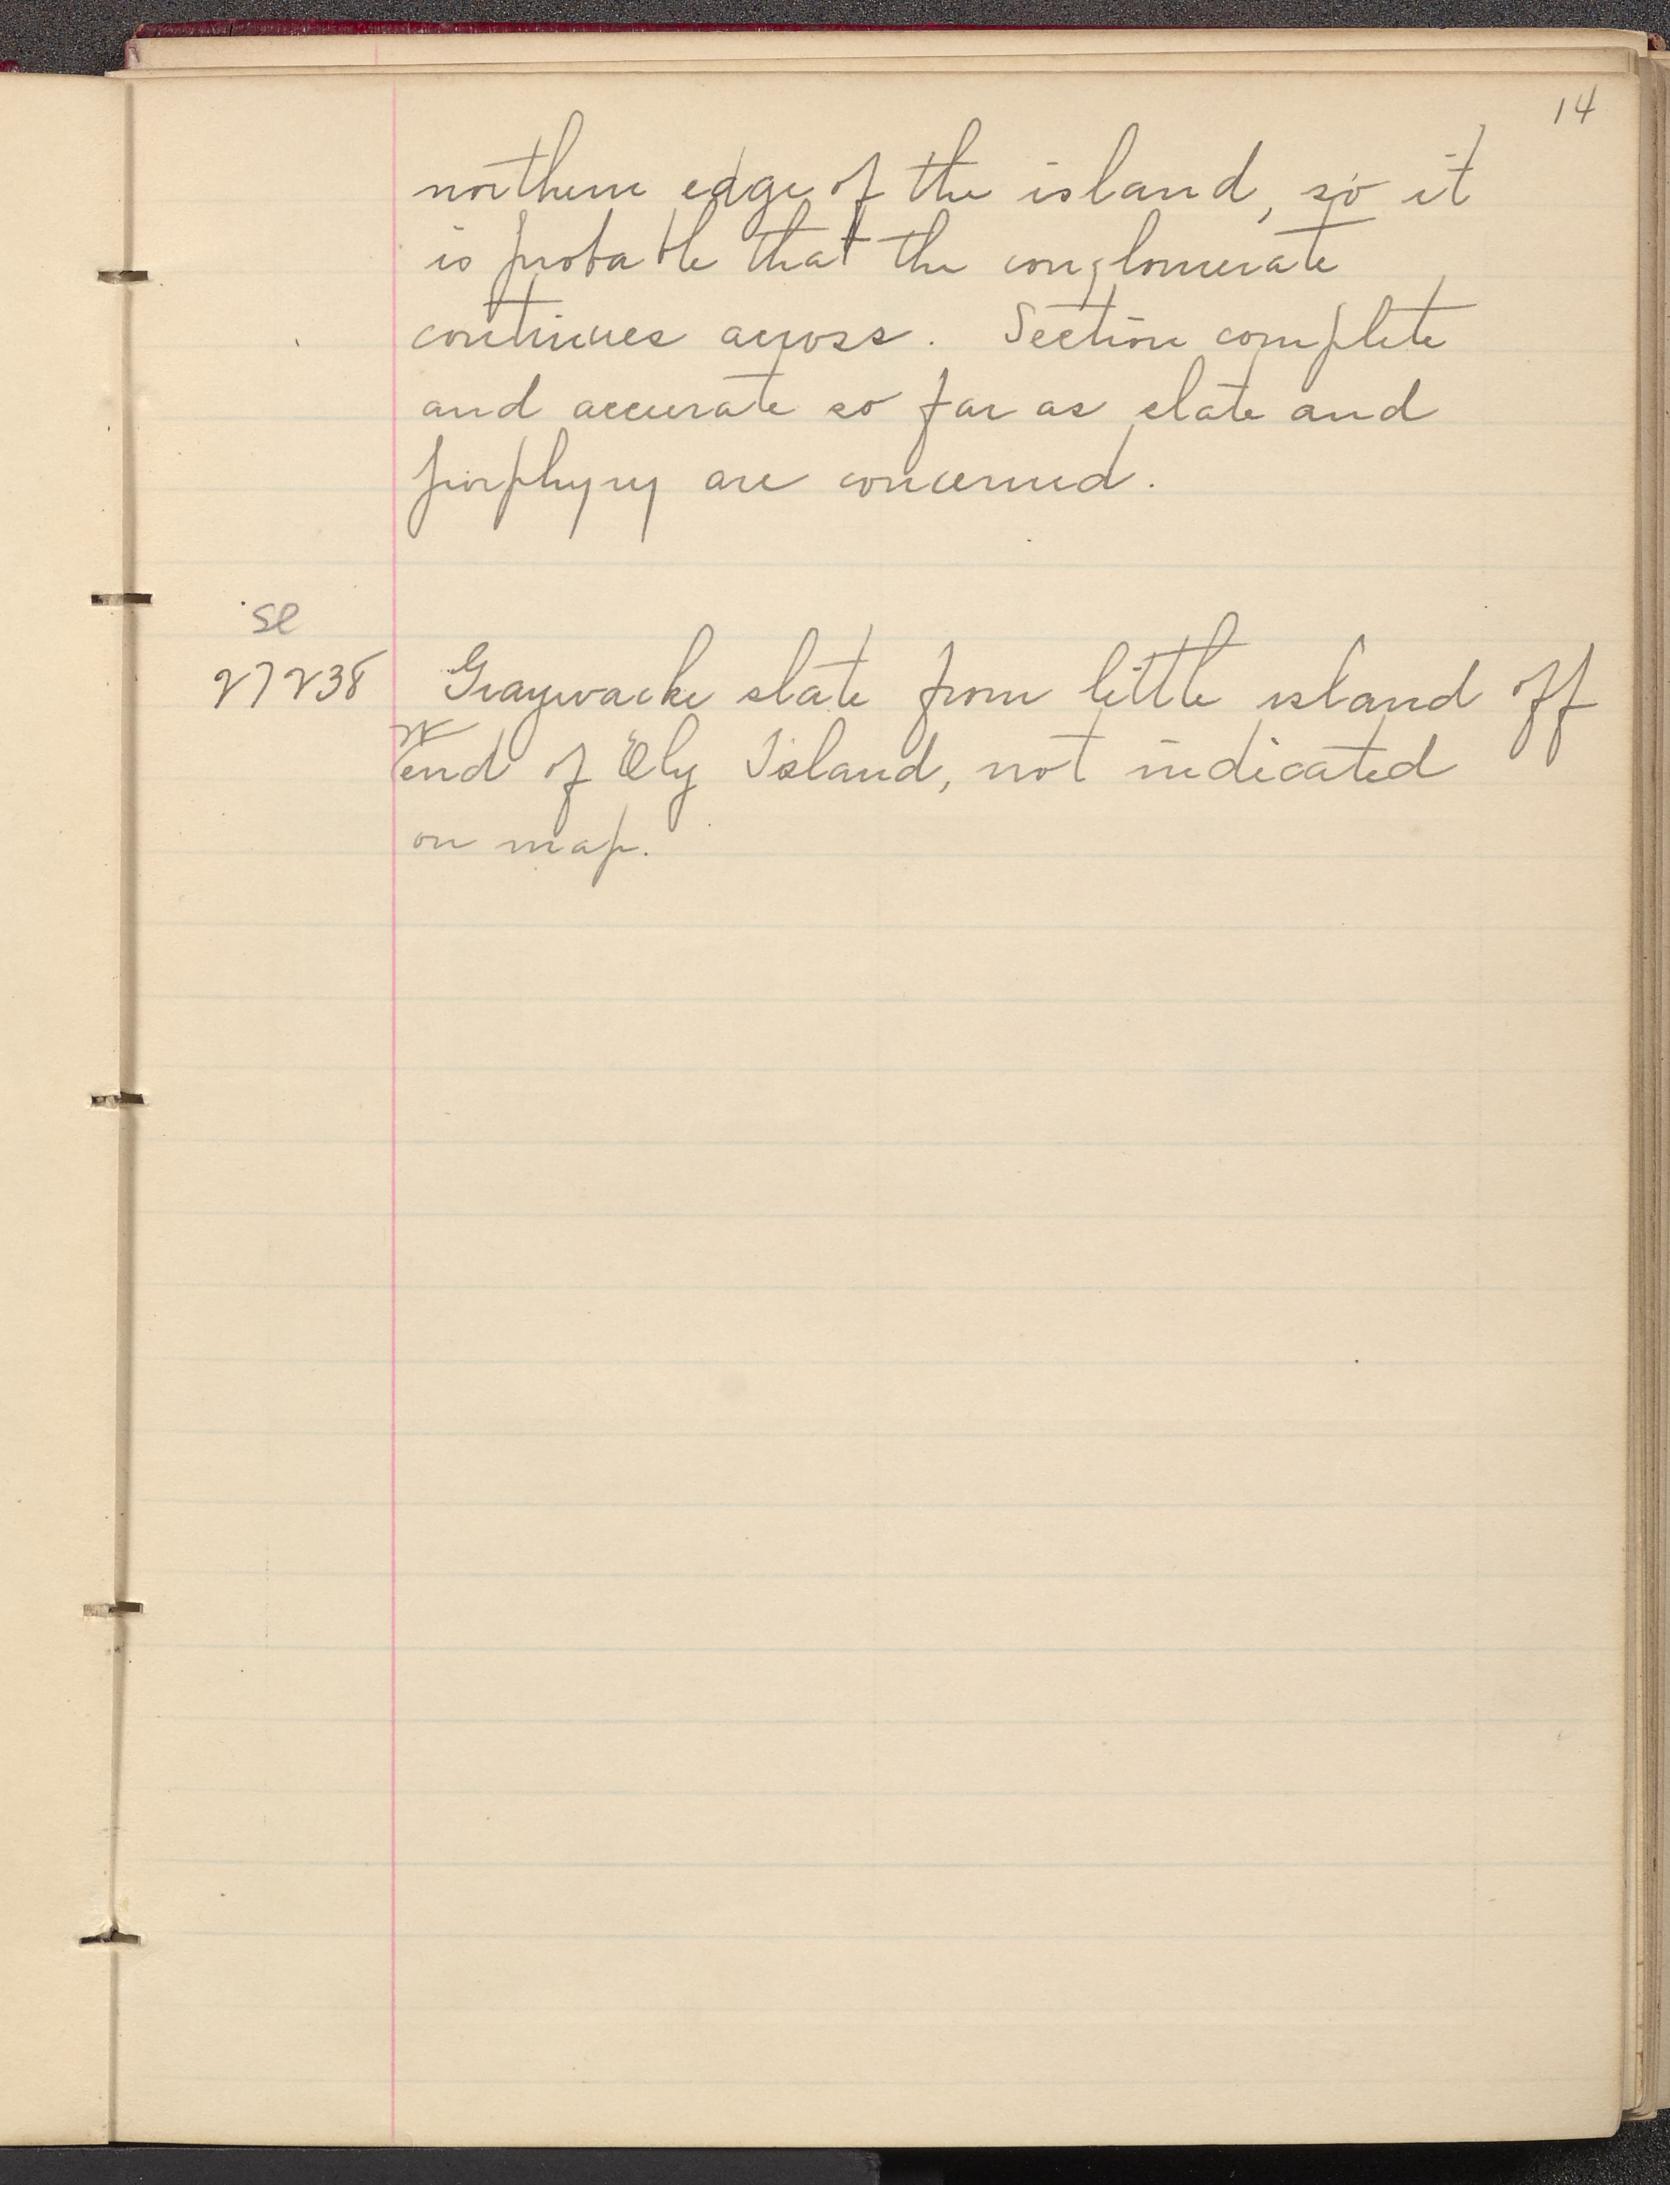 14
northern edge of the island, so it
is probable that the conglomerate
continues across. Section complete
and accurate so far as slate and
porphyry are concerned.
sl
27238 Graywacke slate from little island off
W
end of Ely Island, not indicated
on map.